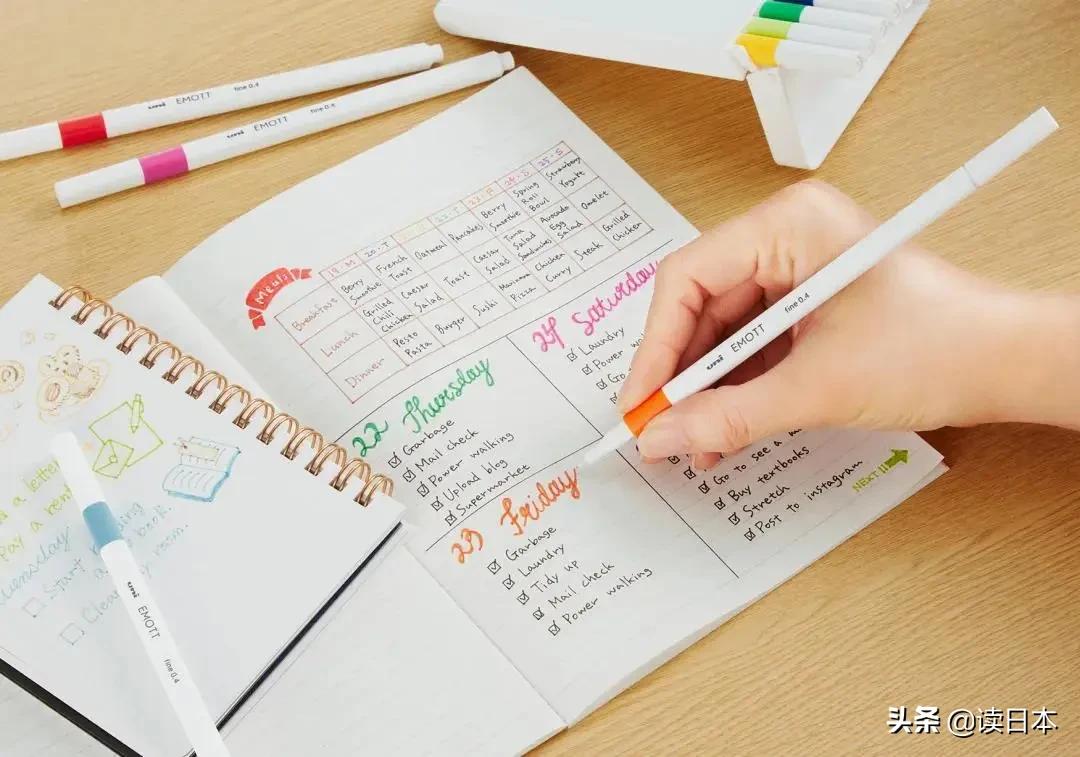 uni EMOTT fine 0.4
uni EMOTT fine 0.4
MEUL
19·M 20·T 22·T 23·F 24·S 25·S
Breakfast Berry Smoothie French Toast Oatmeal Pancakes Berry Smoothie Spring Roll Bowl Strawberry Yogurt
Lunch Grilled Chili Chicken Caesar Salad Toast Caesar Salad Tuna Salad Sandwiches Avocado Egg Salad Omelet
Dinner Pesto Pasta Burger Sushi Marinara Pizza Chicken Curry Steak Grilled Chicken
22 Thursday
Garbage
Mail check
Power walking
Upload blog
Supermarket
24 Saturday
Laundry
Power
Go
23 Friday
Garbage
Laundry
Tidy up
Mail check
Power walking
Go to see a
Buy textbooks
Stretch
Post to instagram
NEXT!!
uni EMOTT fine 0.4
a letter
Pay a
Start
a book.
Clean
room.
uni EMOTT fine 0.4
头条 @读日本